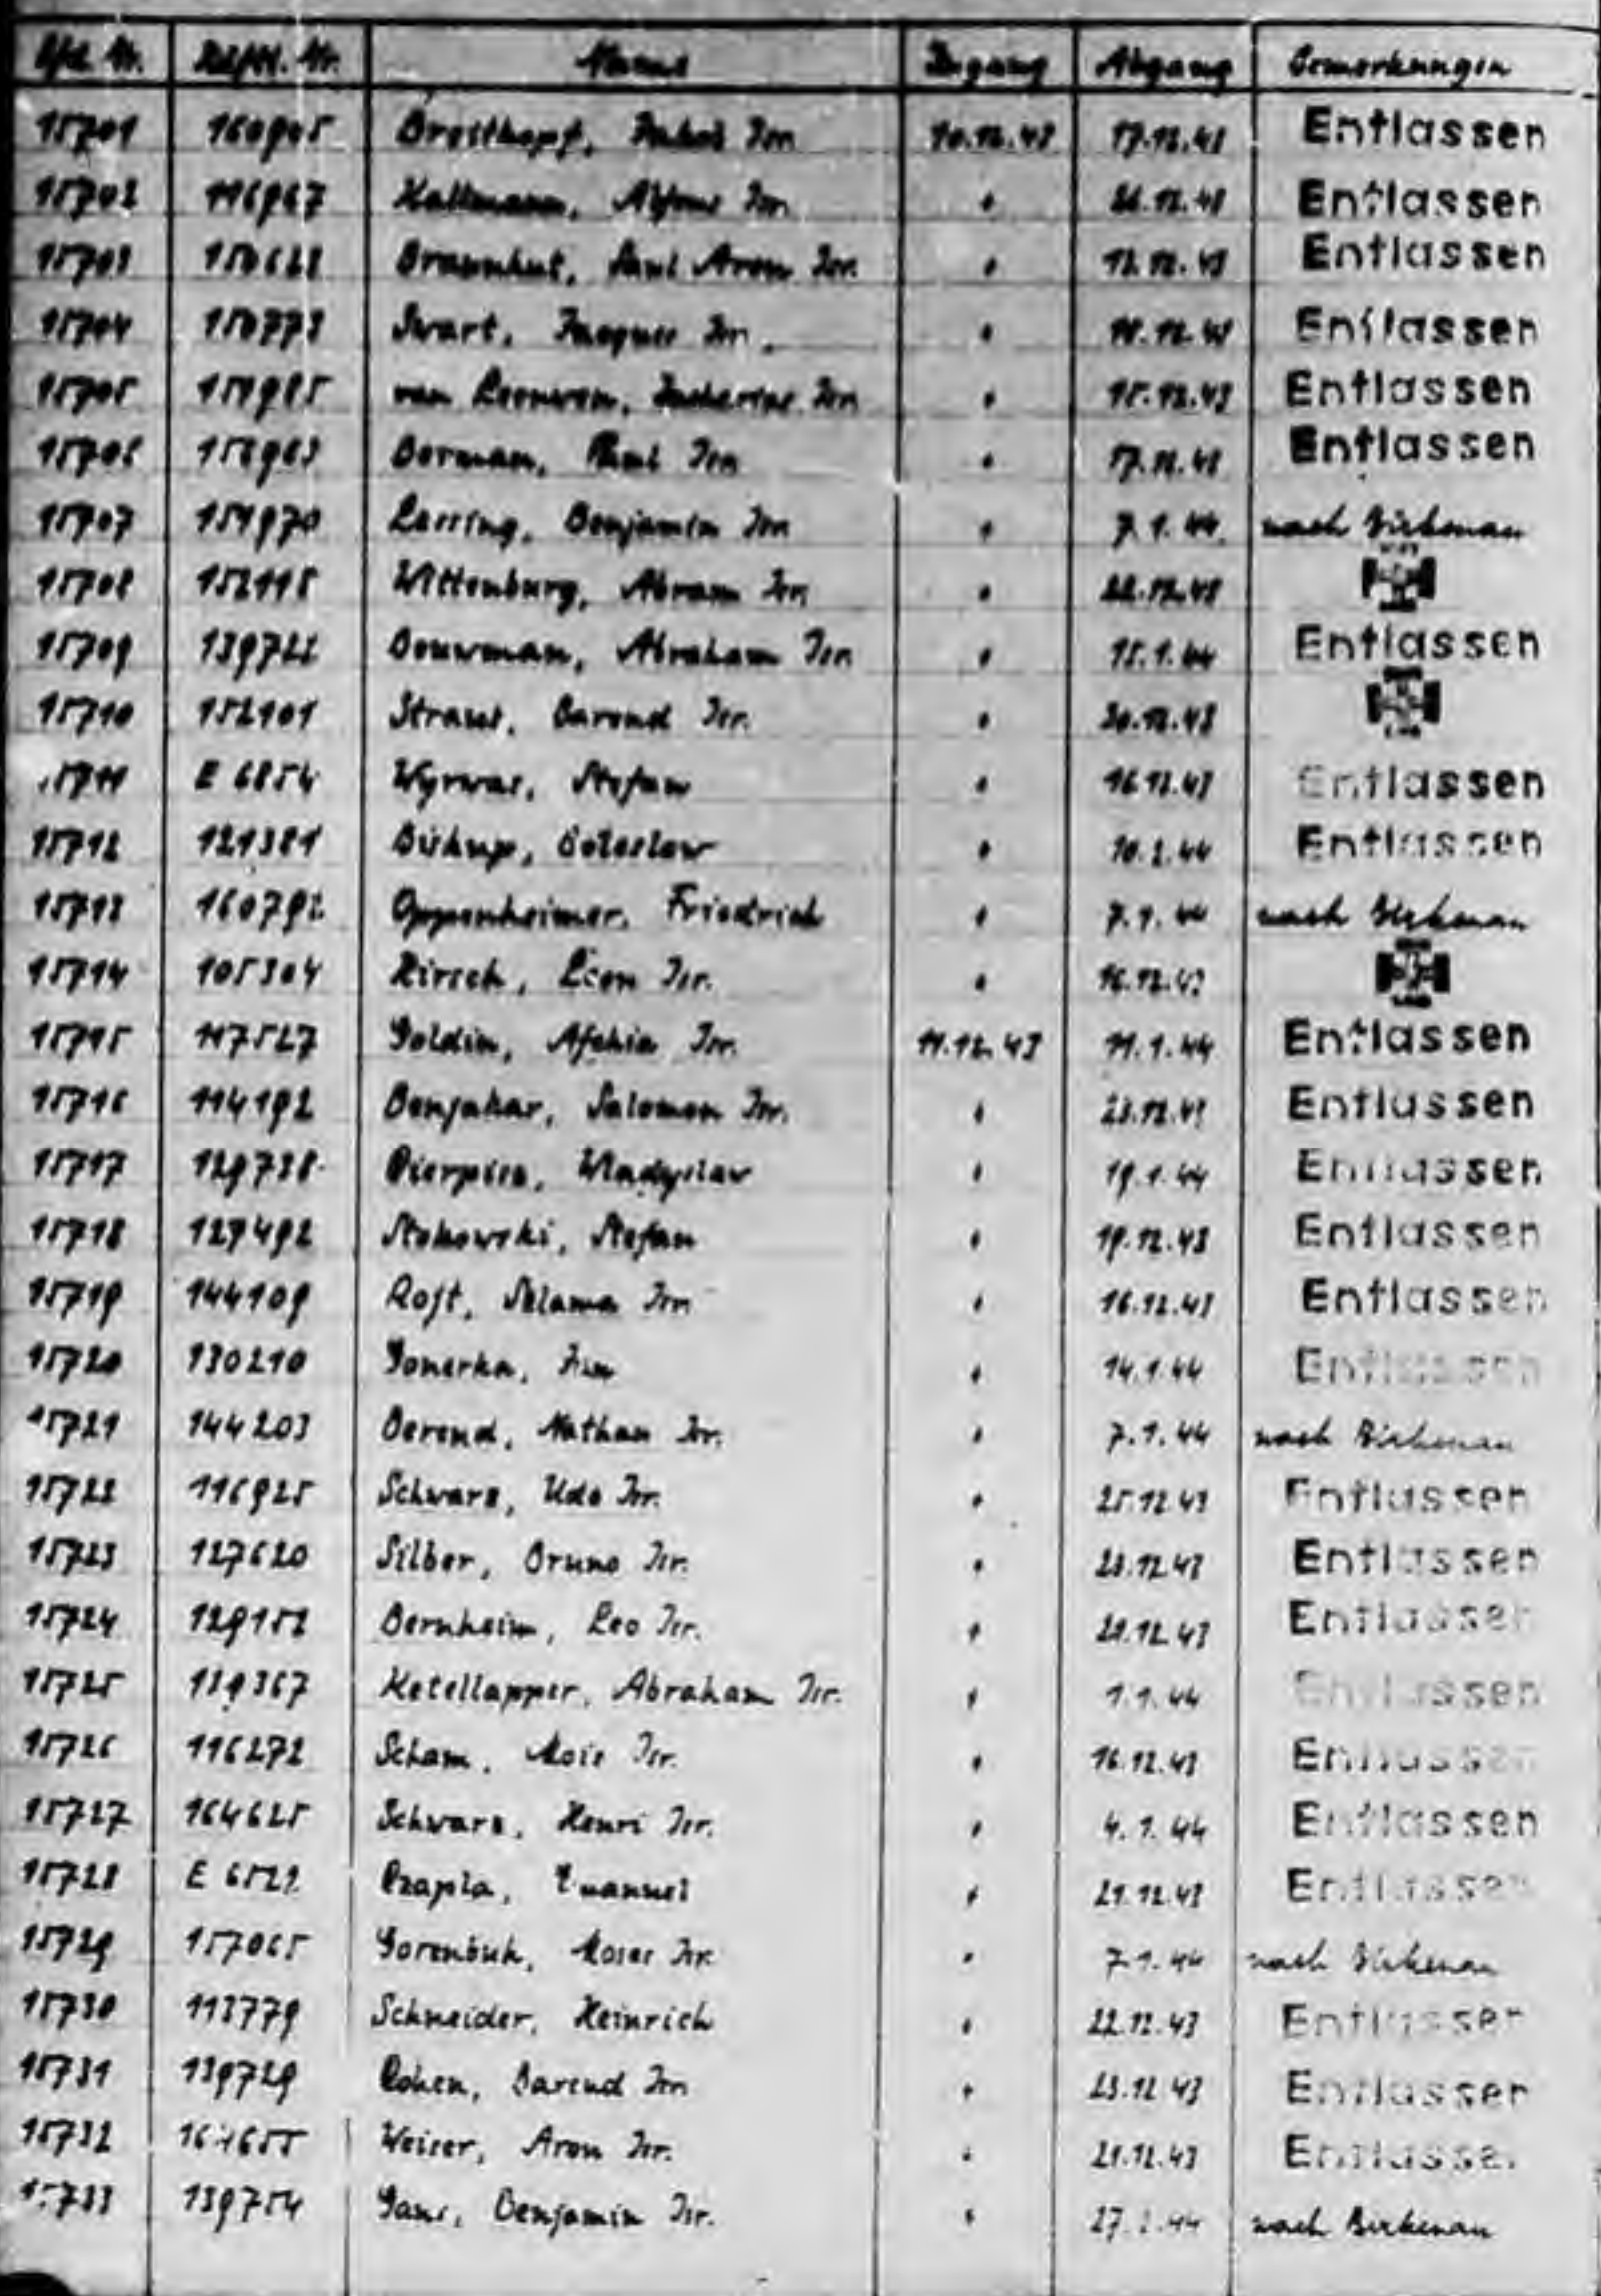 Lfd. Nr. Häftl. Nr. Name Zugang Abgang Bemerkungen
15701 160905 Breitkopf, Isr. 10.12.43 17.12.43 Entlassen
15702 116967 Kallmann, Alfons Isr. " Entlassen
15703 150628 Braunhut, Paul Aron Isr. " Entlassen
15704 150773 Swart, Jacques Isr. " Entlassen
15705 151985 van Leeuwen, Isr. " 15.12.43 Entlassen
15706 Borman, Paul Isr. " 17.12.43 Entlassen
15707 151970 Lessing, Benjamin Isr. " 7.1.44 nach Birkenau
15708 152115 Wittenburg, Abram Isr. " 22.12.43
15709 139722 Bouwman, Abraham Isr. " 15.1.44 Entlassen
15710 152101 Straus, Barend Isr. " 20.12.43
15711 E 6854 Wyrwas, Stefan " 16.12.43 Entlassen
15712 121381 Biskup, Boleslaw " 10.2.44 Entlassen
15713 160792 Oppenheimer, Friedrich " 7.1.44 nach Birkenau
15714 105304 Hirsch, Leon Isr. " 16.12.43
15715 117527 Goldin, Isr. 11.12.43 11.1.44 Entlassen
15716 114192 Benjakar, Salomon Isr. " 23.12.43 Entlassen
15717 129738 Wladyslaw " 19.1.44 Entlassen
15718 127492 Stokowski, Stefan " 19.12.43 Entlassen
15719 144109 Salama Isr. " 16.12.43 Entlassen
15720 130210 " 14.1.44 Entlassen
15721 144203 Berend, Nathan Isr. " 7.1.44 nach Birkenau
15722 116925 Schwarz, Udo Isr. " 25.12.43 Entlassen
15723 127620 Silber, Bruno Isr. " 23.12.43 Entlassen
15724 129152 Bernheim, Leo Isr. " Entlassen
15725 139367 Ketellapper, Abraham Isr. " 1.1.44 Entlassen
15726 116272 Scham, Mois Isr. " 16.12.43 Entlassen
15727 164625 Schwarz, Henri Isr. " 4.1.44 Entlassen
15728 Czapla, Emanuel " 21.12.43 Entlassen
15729 157065 Moses Isr. " 7.1.44 nach Birkenau
15730 113779 Schneider, Heinrich " 22.12.43 Entlassen
15731 139729 Cohen, Barend Isr. " 23.12.43 Entlassen
15732 Weiser, Aron Isr. " 21.12.43 Entlassen
15733 139754 Gans, Benjamin Isr. " nach Birkenau